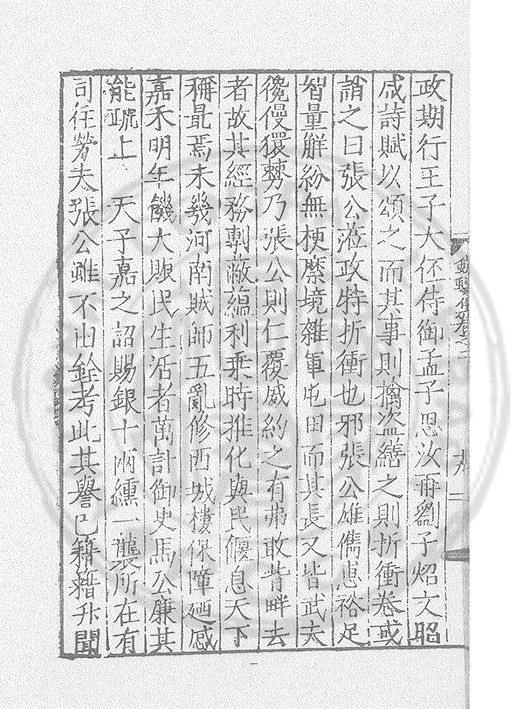 政期行王子大伾侍御孟子思汝甫劉子炤文昭
咸詩賦以頌之而其事則擒盗繕之則折衝卷或
誚之曰張公蒞政特折衝也邪張公雄儁恵裕足
智量觧紛無梗縻境雜軍屯田而其長又皆武夫
儳僈獧剺乃張公則仁覆威約之有弗敢背畔去
者故其經務剸蔽蘊利乗時推化與民偃息天下
稱㝡焉未幾河南賊師五亂修西城樓保障廼感
嘉禾明年饑大賑民生活者萬計御史馬公廉其
能疏上 天子嘉之詔賜銀十两纁一襲所在有
司徃勞夫張公雖不由銓考此其譽已籍籍升聞
卷之二